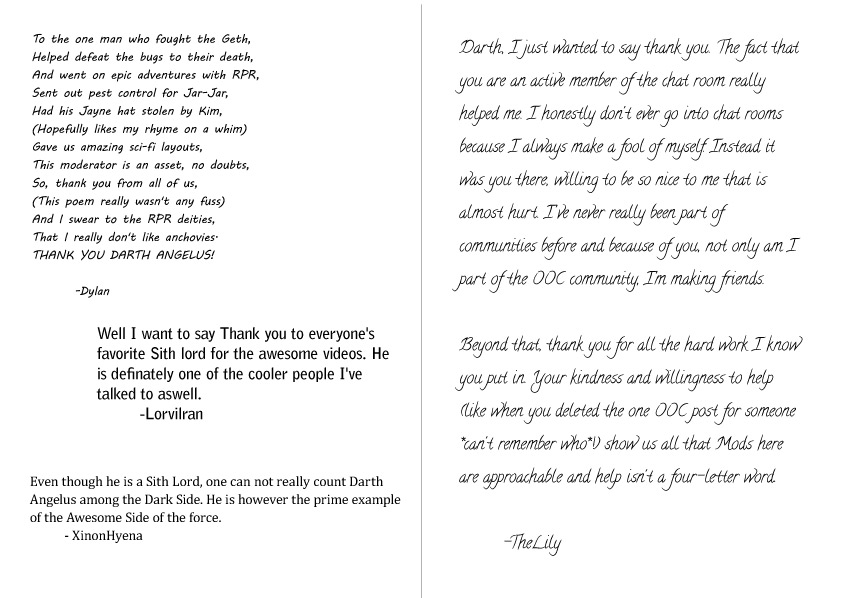 To the one man who fought the Geth,
Helped defeat the bugs to their death,
And went on epic adventures with RPR,
Sent out pest control for Jar-Jar,
Had his Jayne hat stolen by Kim,
(Hopefully likes my rhyme on a whim)
Gave us amazing sci-fi layouts,
This moderator is an asset, no doubts,
So, thank you from all of us,
(This poem really wasn't any fuss)
And I swear to the RPR deities,
That I really don't like anchovies.
THANK YOU DARTH ANGELUS!
-Dylan
Well I want to say Thank you to everyone's
favorite Sith lord for the awesome videos. He
is definately one of the cooler people I've
talked to aswell.
-Lorvilran
Even though he is a Sith Lord, one can not really count Darth
Angelus among the Dark Side. He is however the prime example
of the Awesome Side of the force.
- XinonHyena
Darth, I just wanted to say thank you. The fact that
you are an active member of the chat room really
helped me. I honestly don't ever go into chat rooms
because I always make a fool of myself. Instead it
was you there, willing to be so nice to me that is
almost hurt. I've never really been part of
communities before and because of you, not only am I
part of the OOC community, I'm making friends.
Beyond that, thank you for all the hard work I know
you put in. Your kindness and willingness to help
(like when you deleted the one OOC post for someone
*can't remember who*!) show us all that Mods here
are approachable and help isn't a four-letter word.
-TheLily